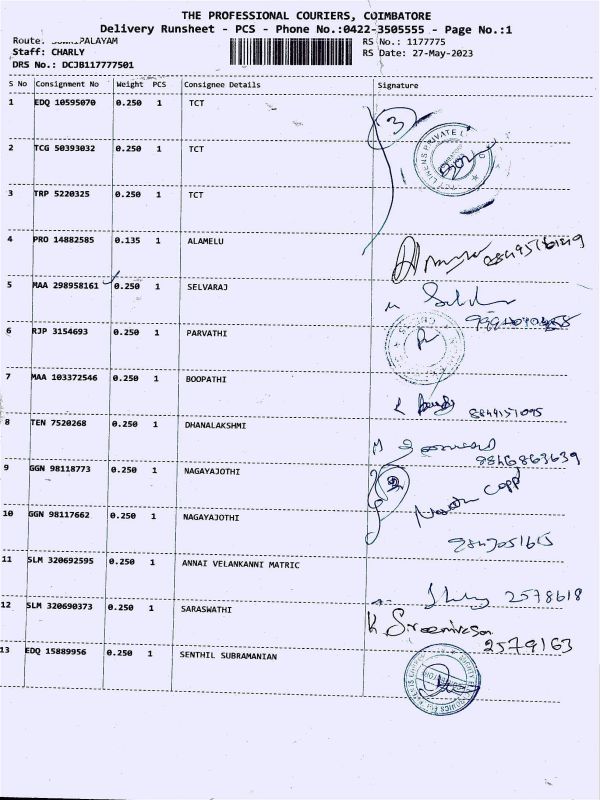 THE PROFESSIONAL COURIERS, COIMBATORE
Delivery Runsheet - PCS - Phone No.:0422-3505555 - Page No.:1
Route: PALAYAM RS No.: 1177775
Staff: CHARLY RS Date: 27-May-2023
DRS No.: DCJB117777501
S No Consignment No Weight PCS Consignee Details Signature
1 EDQ 10595070 0.250 1 TCT 3
2 TCG 50393032 0.250 1 TCT
3 TRP 5220325 0.250 1 TCT
4 PRO 14882585 0.135 1 ALAMELU
5 MAA 298958161 0.250 1 SELVARAJ
6 RJP 3154693 0.250 1 PARVATHI
7 MAA 103372546 0.250 1 BOOPATHI
8 TEN 7520268 0.250 1 DHANALAKSHMI
9846863639
9 GGN 98118773 0.250 1 NAGAYAJOTHI
10 GGN 98117662 0.250 1 NAGAYAJOTHI
11 SLM 320692595 0.250 1 ANNAI VELANKANNI MATRIC
2578618
12 SLM 320690373 0.250 1 SARASWATHI K Sreenivasan
2579163
13 EDQ 15889956 0.250 1 SENTHIL SUBRAMANIAN